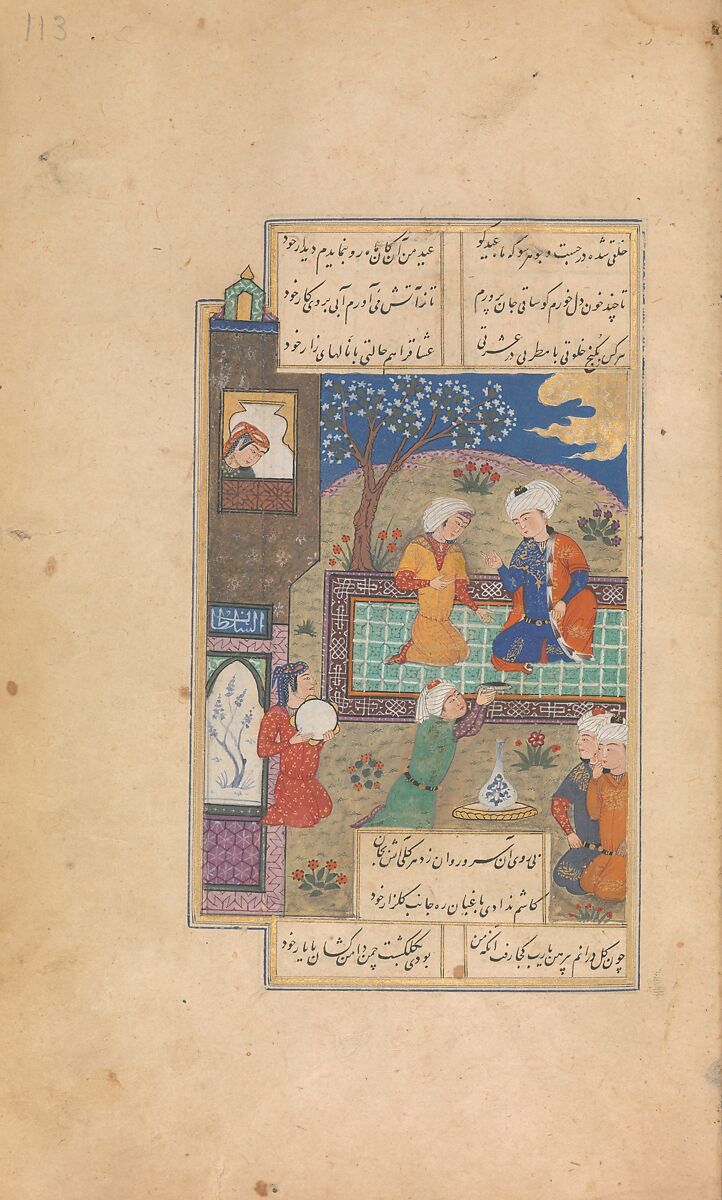 113
خلقی شده در جست و جو هر سو که ماه عید کو
عید من آن کان ماه رو بنمایدم دیدار خود
تا چند خون دل خورم کو ساقی جان پرورم
تا زآتش می آورم آبی بروی کار خود
هر کس بکنج خلوتی با مطربی در عشرتی
عشاق را هم حالتی با نالهای زار خود
السلطان
بی روی آن سرو روان زد هر گلی آتش بجان
کاشم ندادی باغبان ره جانب گلزار خود
چون گل درانم پیرهن یارب کجا رفت آنکه من
بودی بگلگشت چمن دامن کشان با یار خود